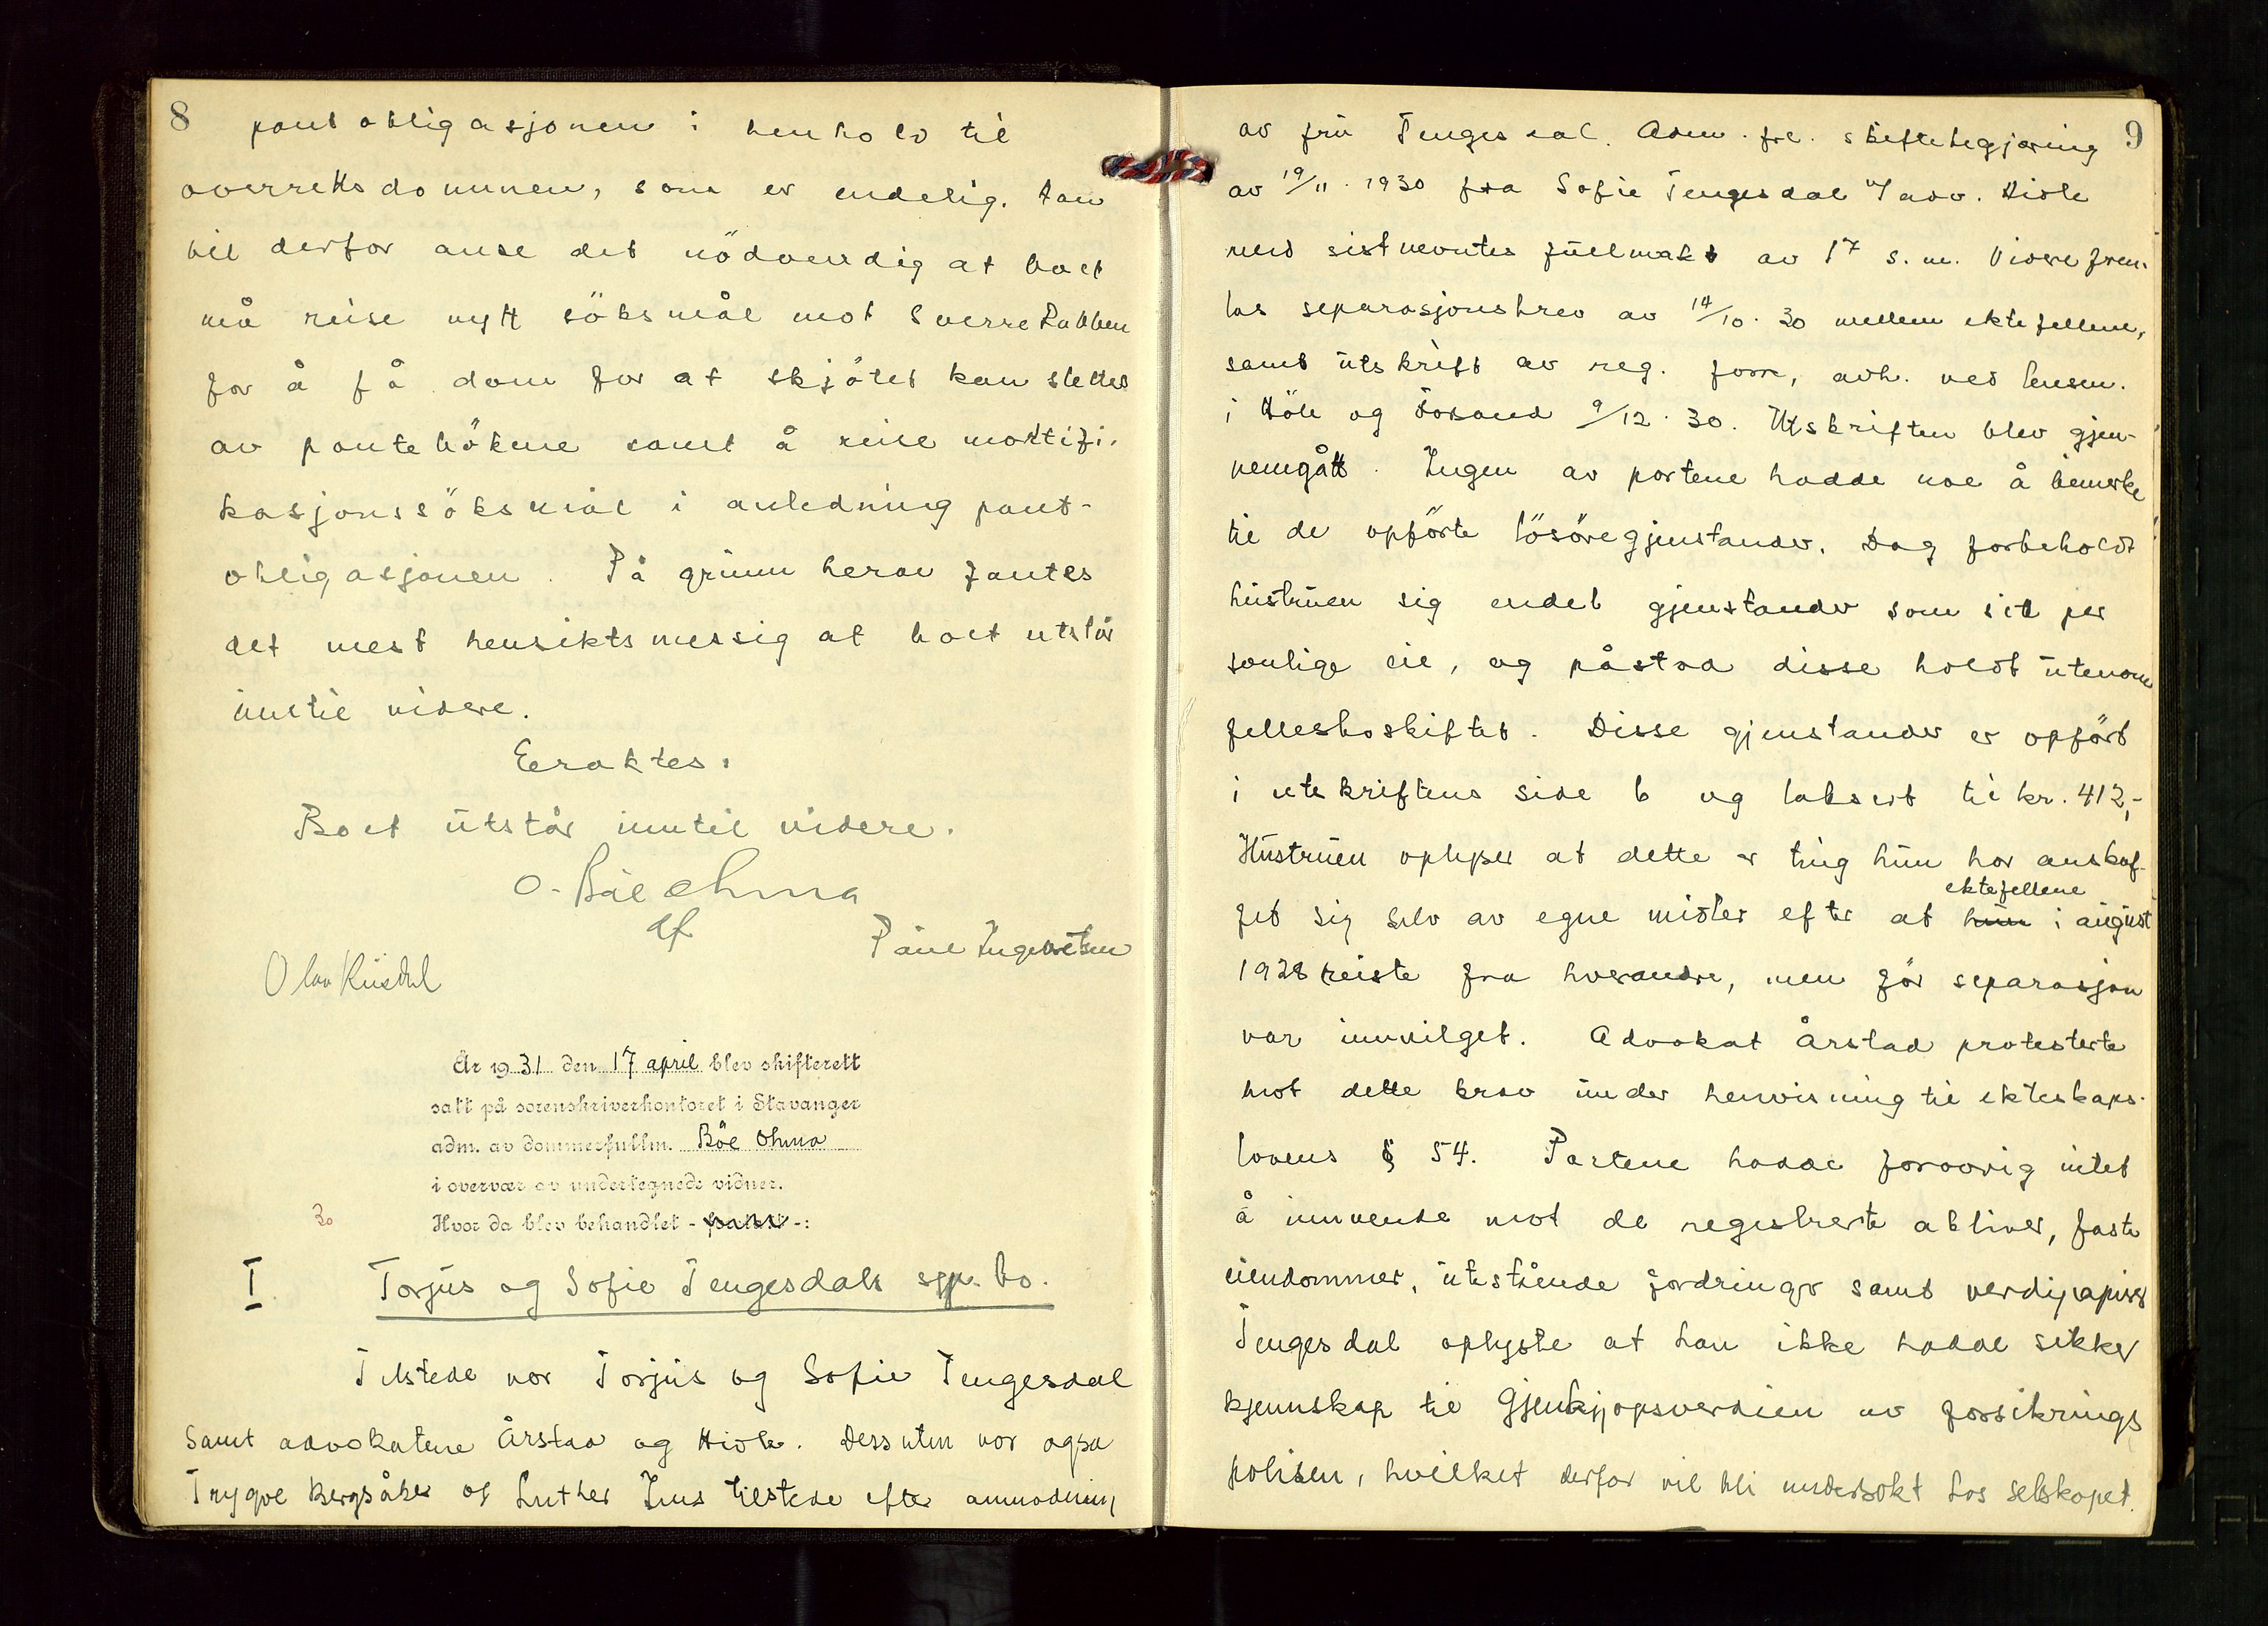 8
pantobligasjonen i henhold til
overrettsdommen, som er endelig. Han
vil derfor anse det nödvendig at boet
må reise nytt söksmål mot Sverre Rabben
for å få dom for at skjötet kan slettes
av pantebökene samt å reise mortifi-
kasjonssöksmål i anledning pant-
obligasjonen. På grunn herav fantes
det mest hensiktsmessig at boet utstår
inntil videre.
Eraktes:
Boet utstår inntil videre.
O. Böe Ohma
df
Paul Ingebretsen
Olav Riisdal
År 1931 den 17 april blev skifterett
satt på sorenskriverkontoret i Stavanger
adm. av dommerfullm. Böe Ohma
i overvær av undertegnede vidner.
30
Hvor da blev behandlet - -:
I. Torjus og Sofie Tengesdals sep. bo.
Tilstede var Torjus og Sofie Tengesdal
samt advokatene Årstad og Hiole. Dessuten var også
Trygve Bergsåker og Luther Ims tilstede efter anmodning
9
av fru Tengesdal. Adm. frl. skiftebegjæring
av 19/11. 1930 fra Sofie Tengesdal v/adv. Hiole
med sistnevntes fullmakt av 17 s.m. Videre frem-
las separasjonsbrev av 14/10. 30 mellem ektefellene,
samt utskrift av reg. forr, avh. ved lensm.
i Höle og Forsand 9/12. 30. Utskriften blev gjen-
nemgått. Ingen av partene hadde noe å bemerke
til de opförte lösöregjenstander. Dog forbeholdt
hustruen sig endel gjenstander som sitt per
sonlige eie, og påstod disse holdt utenom
fellesboskiftet. Disse gjenstander er opfört
i utskriftens side 6 og taksert til kr. 412,-
Hustruen oplyser at dette er ting hun har anskaf-
fet sig selv av egne midler efter at hun ektefellene i august
1928 reiste fra hverandre, men för separasjon
var innvilget. Advokat Årstad protesterte
mot dette krav under henvisning til ekteskaps-
lovens § 54. Partene hadde forøvrig intet
å innvende mot de registrerte aktiver, faste
eiendommer, utestående fordringer samt verdipapirer
Tengesdal oplyste at han ikke hadde sikker
kjennskap til gjenkjöpsverdien av forsikrings
polisen, hvilket derfor vil bli undersökt hos selskapet.